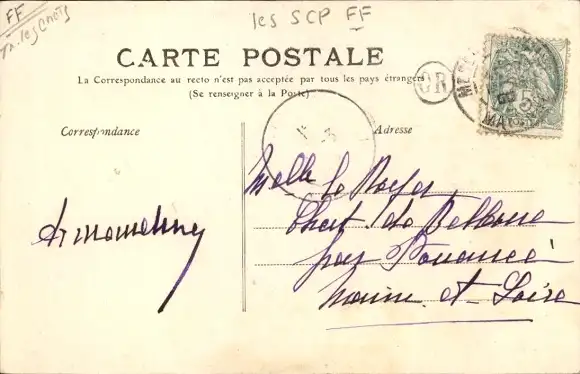 FF
les SCP FF
CARTE POSTALE
La Correspondance au recto n'est pas acceptée par tous les pays étrangers
(Se renseigner à la Poste)
OR
Correspondance
Adresse
Melle le Royer
Chat. de
par Pouancé
Maine-et-Loire